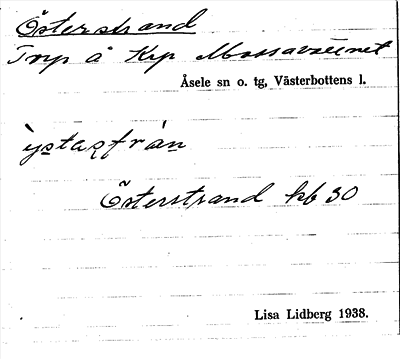 Österstrand
Torp å Krp Mossavattnet
Åsele sn o. tg, Västerbottens l.
ỳstaṣfrån
Österstrand hb 30
Lisa Lidberg 1938.